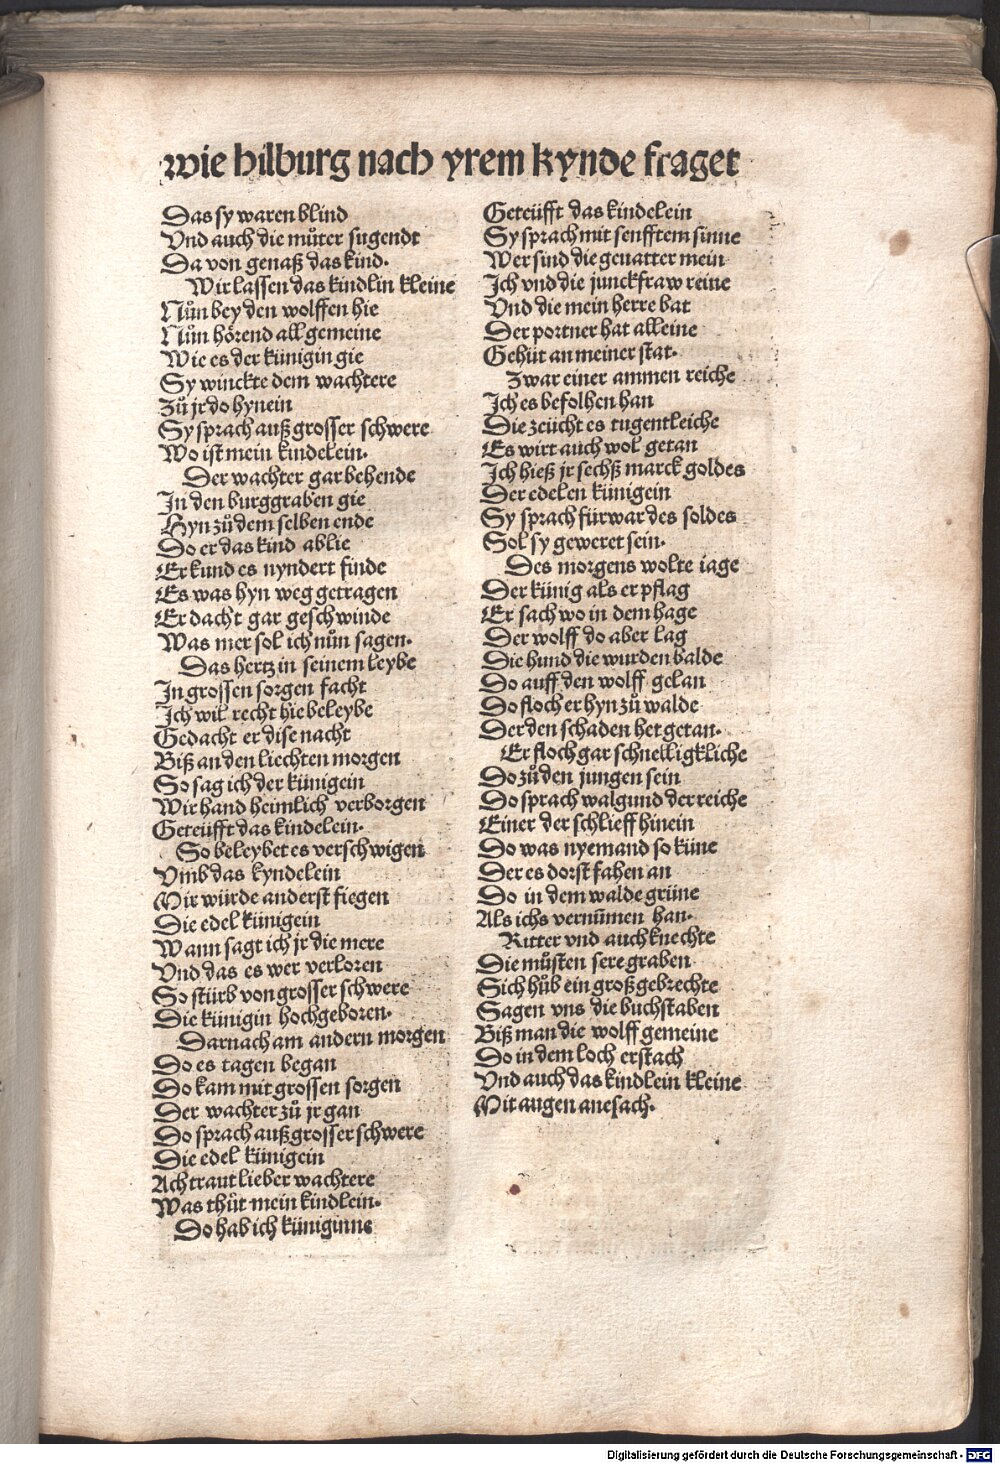 wie hilburg nach yrem kynde fraget
Das sy waren blind
Vnd auch die můter sugendt
Da von genaß das kind.
Wir lassen das kindlin kleine
Nůn bey den wolffen hie
Nůn hörend all gemeine
Wie es der künigin gie
Sy winckte dem wachtere
Zů jr do hynein
Sy sprach auß grosser schwere
Wo ist mein kindelein.
Der wachter gar behende
In den burggraben gie
Hyn zů dem selben ende
Do er das kind ablie
Er kund es nyndert finde
Es was hyn weg getragen
Er dacht gar geschwinde
Was mer sol ich nůn sagen.
Das hertz in seinem leybe
In grossen sorgen facht
Ich wil recht hie beleybe
Gedacht er dise nacht
Biß an den liechten morgen
So sag ich der künigein
Wir hand heimlich verborgen
Geteüfft das kindelein.
So beleybet es verschwigen
Vmb das kyndelein
Mir würde anderst fiegen
Die edel künigein
Wann sagt ich jr die mere
Vnd das es wer verloren
So stürb von grosser schwere
Die künigin hochgeboren.
Darnach am andern morgen
Do es tagen began
Do kam mit grossen sorgen
Der wachter zů jr gan
Do sprach auß grosser schwere
Die edel künigein
Ach traut lieber wachtere
Was thůt mein kindlein.
Do hab ich küniginne
Geteüfft das kindelein
Sy sprach mit senfftem sinne
Wer sind die geuatter mein
Ich vnd die junckfraw reine
Vnd die mein herre bat
Der portner hat alleine
Gehüt an meiner stat.
Zwar einer ammen reiche
Ich es befolhen han
Die zeücht es tugentleiche
Es wirt auch wol getan
Ich hieß jr sechß marck goldes
Der edelen künigein
Sy sprach fürwar des soldes
Sol sy geweret sein.
Des morgens wolte iage
Der künig als er pflag
Er sach wo in dem hage
Der wolff do aber lag
Die hund die wurden balde
Do auff den wolff gelan
Do floch er hyn zů walde
Der den schaden het getan.
Er floch gar schnelligkliche
Do zů den jungen sein
Do sprach walgund der reiche
Einer der schlieff hinein
Do was nyemand so küne
Der es dorst fahen an
Do in dem walde grüne
Als ichs vernummen han.
Ritter vnd auch knechte
Die můsten sere graben
Sich hůb ein groß gebrechte
Sagen vns die buchstaben
Biß man die wolff gemeine
Do in dem loch erstach
Vnd auch das kindlein kleine
Mit augen anesach.
Digitalisierung gefördert durch die Deutsche Forschungsgemeinschaft - DFG